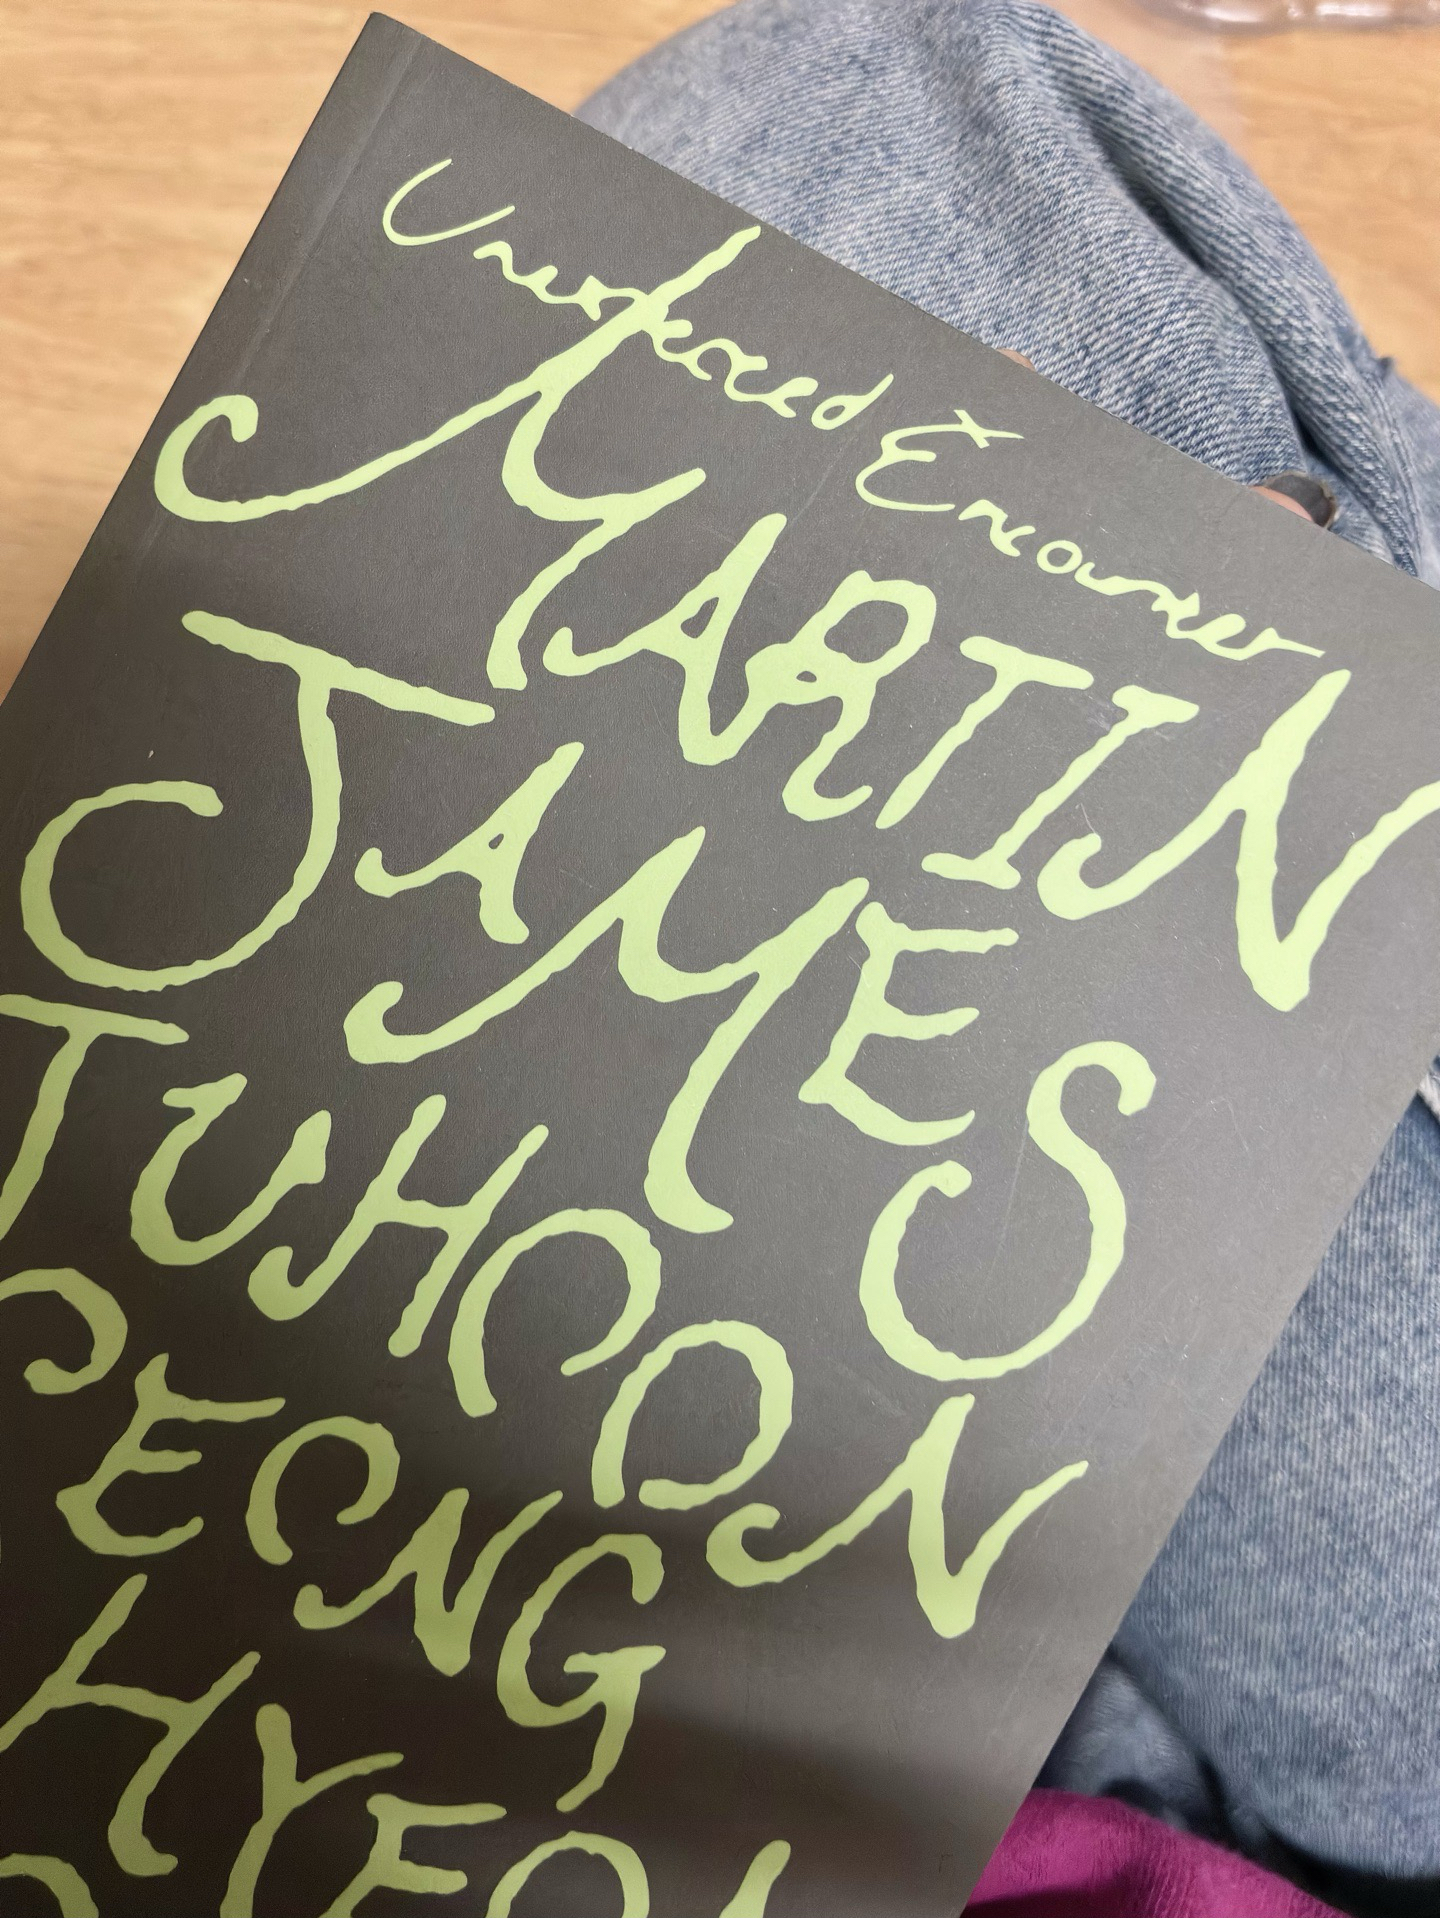 Unexpected Encounter
MARTIN
JAMES
JUHOON
SEONG
HYEON